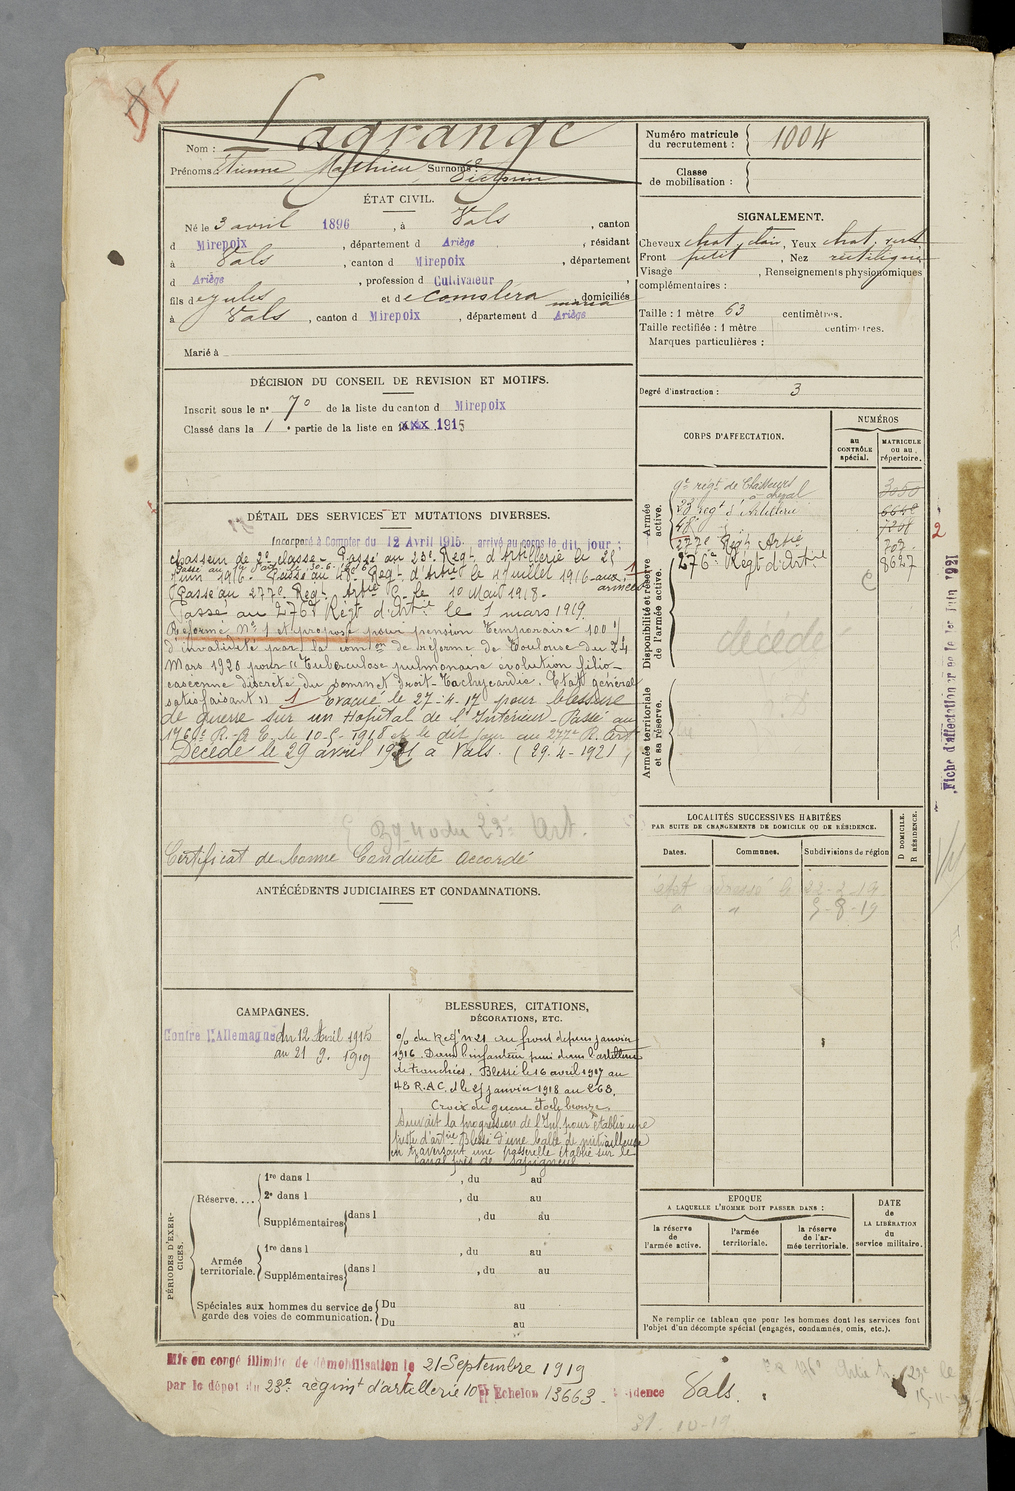 Lagrange
Nom :
Prénoms : Etienne Mathieu Surnoms : Victorin
Numéro matricule du recrutement : 1004
Classe de mobilisation :
ÉTAT CIVIL.
Né le 3 avril 1896, à Vals, canton
d Mirepoix, département d Ariège, résidant
à Vals, canton d Mirepoix, département
d Ariège, profession d Cultivateur,
fils de Jules et de Comslera maria domiciliés
à Vals, canton d Mirepoix, département d Ariège
Marié à
SIGNALEMENT.
Cheveux chat. clair, Yeux chat. vert
Front petit, Nez rectiligne
Visage , Renseignements physionomiques
complémentaires :
Taille : 1 mètre 63 centimètres.
Taille rectifiée : 1 mètre centimètres.
Marques particulières :
Degré d'instruction : 3
DÉCISION DU CONSEIL DE REVISION ET MOTIFS.
Inscrit sous le n° 70 de la liste du canton d Mirepoix
Classé dans la 1 e partie de la liste en 1915
CORPS D'AFFECTATION.
NUMÉROS
au CONTRÔLE spécial.
MATRICULE ou au répertoire.
Armée active.
9e régt. de Chasseurs à cheval 3050
23 regt d'Artillerie 6648
48e
277e Regt Artie 707
276e Régt d'Artie 8627
Disponibilité et réserve de l'armée active.
décédé
Armée territoriale et sa réserve.
Fiche d'affectation créée le 1er Juin 1921
2
DÉTAIL DES SERVICES ET MUTATIONS DIVERSES.
Incorporé à Compter du 12 Avril 1915. arrivé au corps le dit jour ;
Chasseur de 2e classe - Passé au 23e Reg- d'Artillerie le 25
Juin 1916. Passé au 48e Reg- d'Artie le 4 juillet 1916 - aux armées
Passé au 277e Reg- Artie C- le 10 Mai 1918.
Passé au 276e Régt d'Artie le 1 mars 1919.
Réformé N° 1 et proposé pour pension temporaire 100 %
d'invalidité par la comion de réforme de Toulouse du 24
Mars 1920 pour "Tuberculose pulmonaire évolution fibro-
caséenne discrète du sommet droit - Tachycardie. Etat général
satisfaisant" 1 Evacué le 27-4-17 pour blessure
de guerre sur un Hopital de l'Intérieur - Passé au
176e R.A.C. le 10-5-1918 et le dit jour au 277e R. Art
Décédé le 29 avril 1921 à Vals. (29.4-1921)
du 23e Art.
Certificat de bonne Conduite accordé
LOCALITÉS SUCCESSIVES HABITÉES
PAR SUITE DE CHANGEMENTS DE DOMICILE OU DE RÉSIDENCE.
Dates.
Communes.
Subdivisions de région
D DOMICILE.
R RÉSIDENCE.
adressé le 22-2-19
5-8-19
ANTÉCÉDENTS JUDICIAIRES ET CONDAMNATIONS.
CAMPAGNES.
Contre l'Allemagne du 12 Avril 1915
au 21 9. 1919
BLESSURES, CITATIONS,
DÉCORATIONS, ETC.
% du Regt n 21 Au front depuis janvier
1916. Dans l'infanterie puis dans l'artillerie
de tranchées. Blessé le 16 avril 1917 au
48 R.A.C. et le 25 janvier 1918 au 263.
Croix de guerre étoile bronze
Suivait la progression de l'Inf. pour établir une
poste d'artie Blessé d'une balle de mitrailleuse
en traversant une passerelle établie sur le
canal près de Sapigneul
PÉRIODES D'EXERCICES.
Réserve....
1re dans l , du au
2e dans l , du au
Supplémentaires dans l , du au
Armée territoriale.
1re dans l , du au
Supplémentaires dans l , du au
Spéciales aux hommes du service de garde des voies de communication.
Du au
Du au
EPOQUE
A LAQUELLE L'HOMME DOIT PASSER DANS :
la réserve de l'armée active.
l'armée territoriale.
la réserve de l'armée territoriale.
DATE de LA LIBÉRATION du service militaire.
Ne remplir ce tableau que pour les hommes dont les services font
l'objet d'un décompte spécial (engagés, condamnés, omis, etc.).
Mis en congé illimité de démobilisation le 21 Septembre 1919
par le dépôt du 23e régimt d'artillerie 10e Echelon 13663. Résidence Vals.
31.10-19